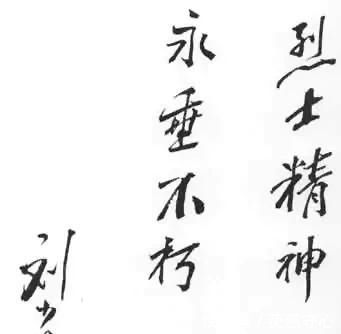 烈士精神
永垂不朽
刘少